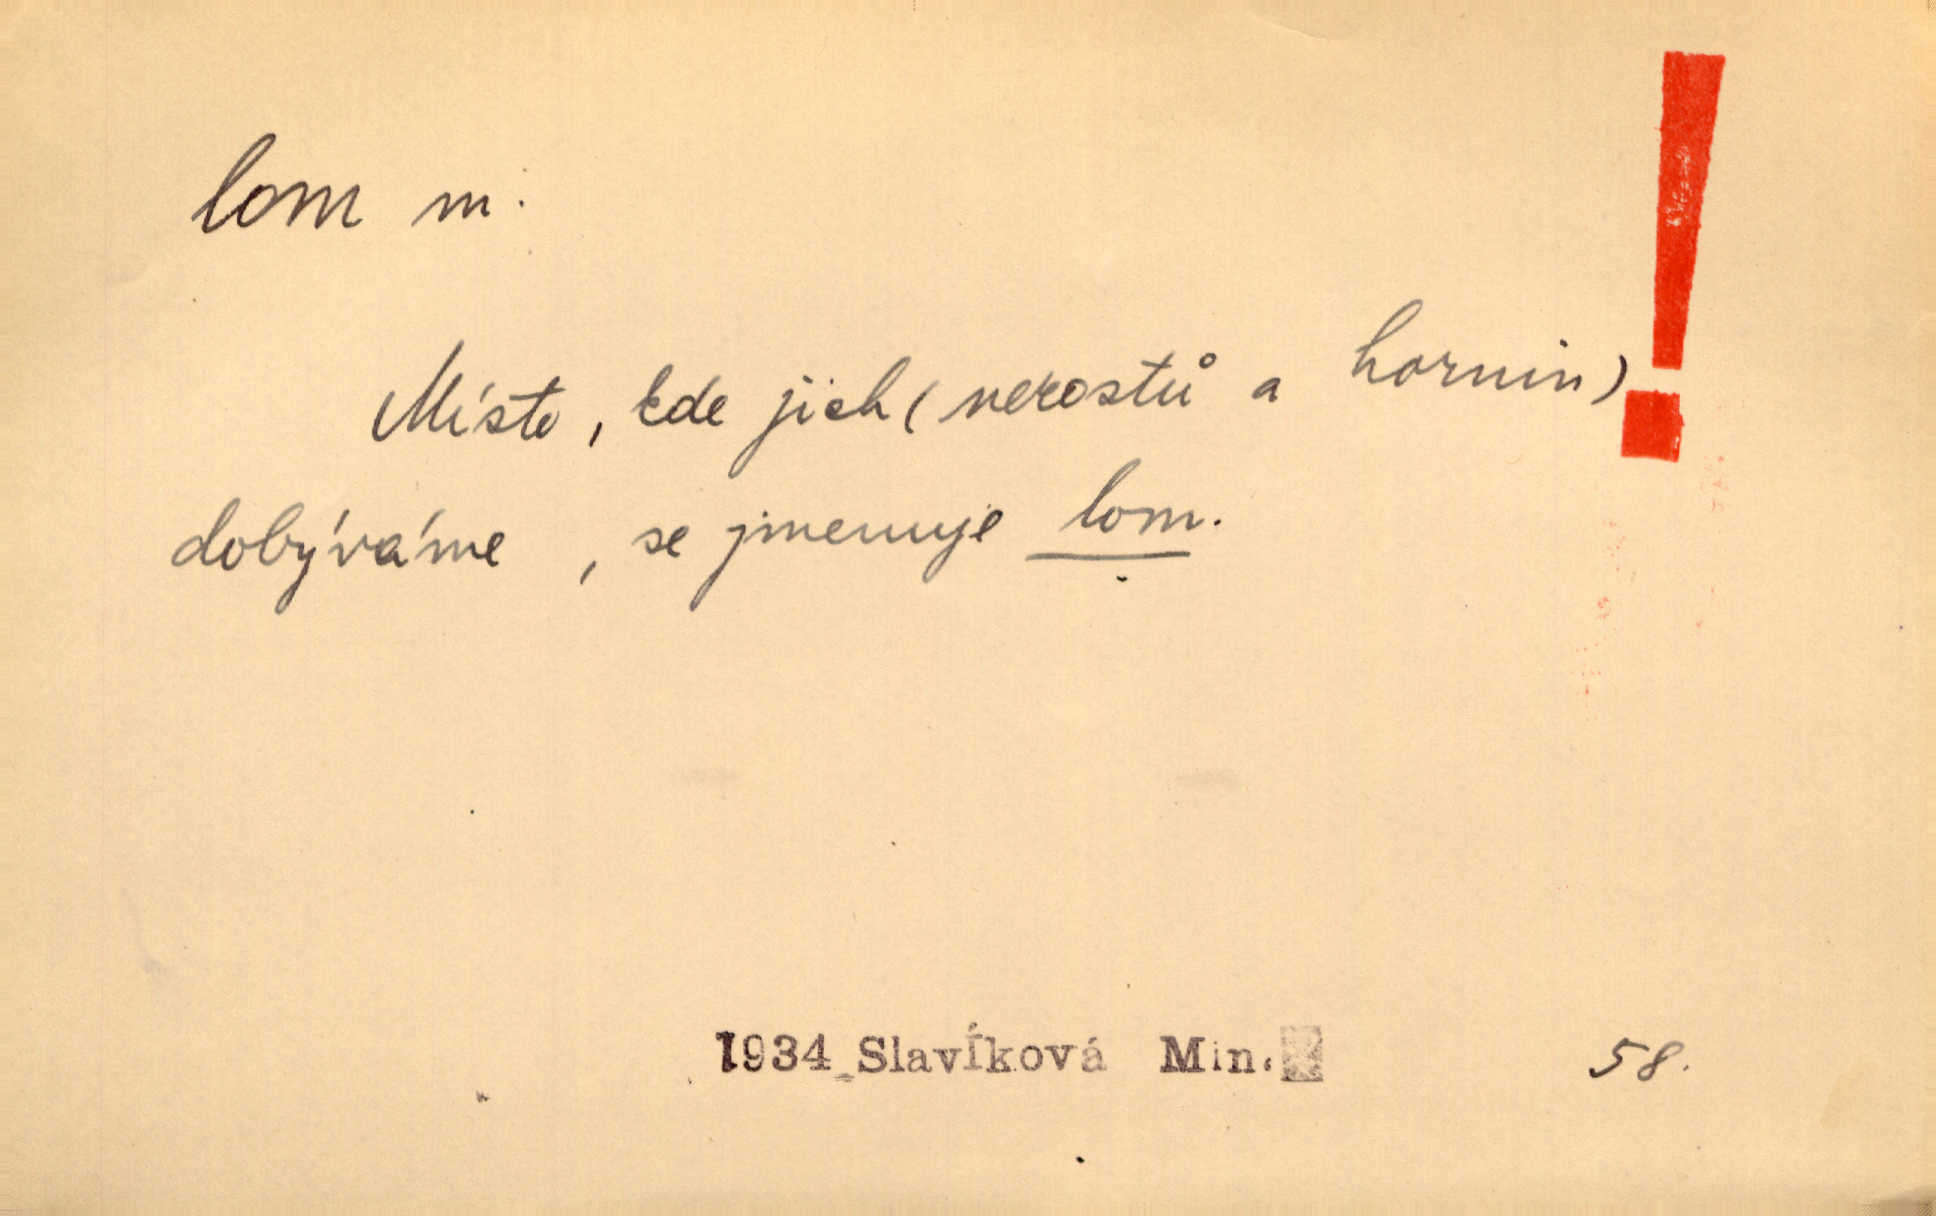 lom m.
!
Místo, kde jich (nerostů a hornin)
dobýváme, se jmenuje lom.
1934 Slavíková Min. 58.